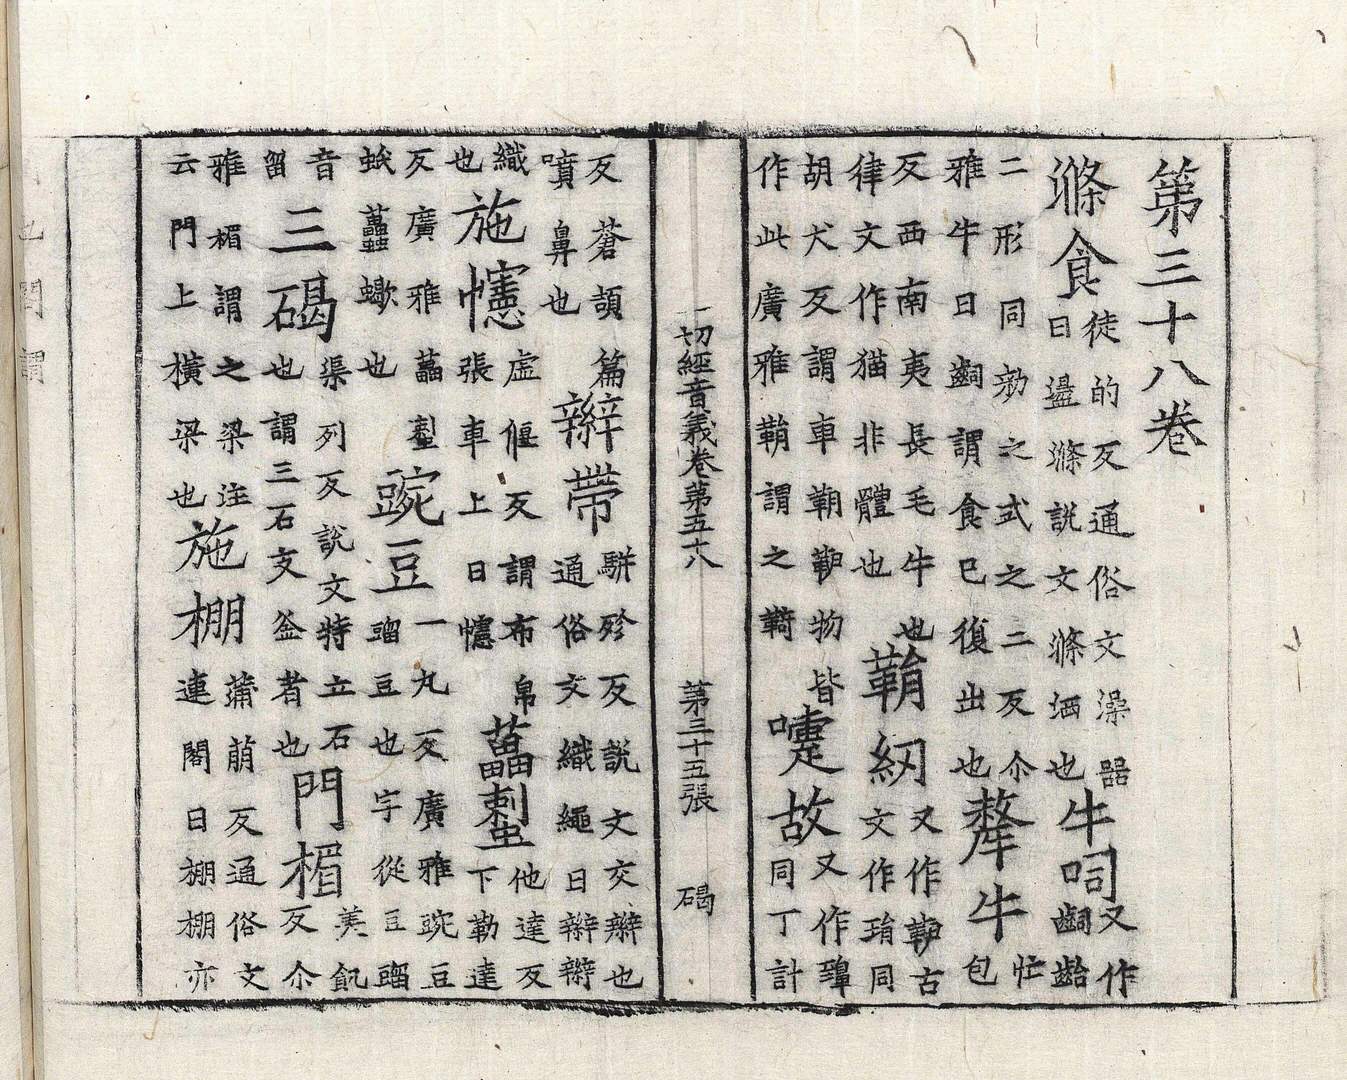 第三十八卷
滌食徒的反通俗文澡器曰盪滌說文滌洒也牛呞又作齝
二形同勑之式之二反尒雅牛曰齝謂食已復出也犛牛忙包
反西南夷長毛牛也律文作猫非體也鞙紉又作古文作琄同
胡犬反謂車鞙物皆作此廣雅鞙謂之嚏故又作同丁計
一切經音義卷第五十八　第三十五張　碣
反蒼頡篇噴鼻也辮帶駢殄反說文交辮也通俗文織繩曰辮辮
織也施幰虛偃反謂布帛張車上曰幰蠆他達反下勒達
反廣雅蠆蛂蠆蠍也豌豆一丸反廣雅豌豆䝁豆也字從豆䝁
音留三碣渠列反說文特立石也謂三石支釜者也門楣美飢反尒
雅楣謂之梁注云門上橫梁也施棚蒲萌反通俗文連閣曰棚棚亦